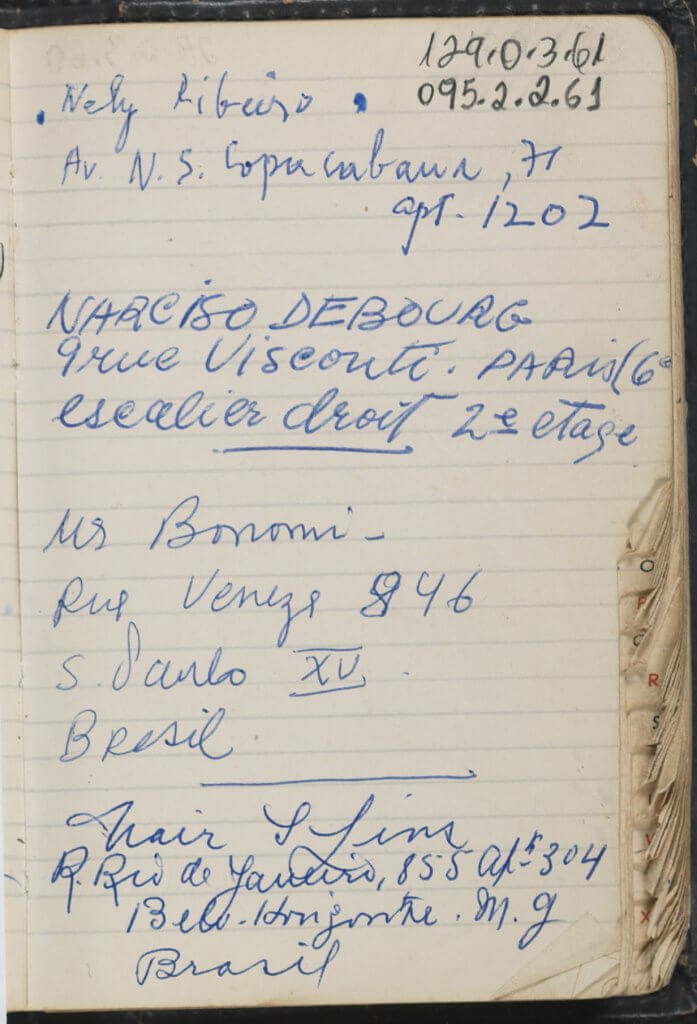 129.0.3.61
095.2.2.61
Nely Ribeiro
Av. N. S. Copacabana, 71
apt. 1202
NARCISO DEBOURG
9 rue Visconti. PARIS (6e
escalier droit 2e etage
Mr Bonomi -
Rue Veneza 846
S. Paulo XV.
Bresil
Nair S Lins
R. Rio de Janeiro, 855 apt 304
Belo-Horizonte. M. g
Brasil
O
P
R
S
V
X